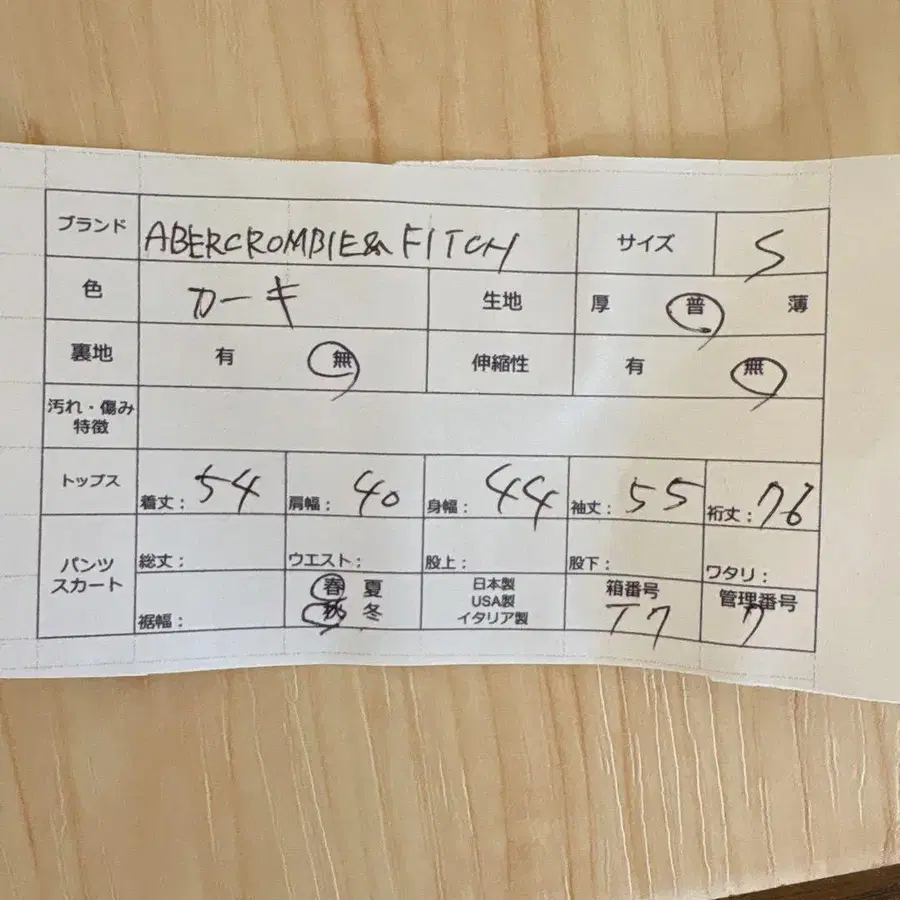 ブランド ABERCROMBIE&FITCH サイズ S
色 カーキ 生地 厚 普 薄
裏地 有 無 伸縮性 有 無
汚れ・傷み
特徴
トップス 着丈: 54 肩幅: 40 身幅: 44 袖丈: 55 裄丈: 76
パンツ
スカート
総丈: ウエスト: 股上: 股下: ワタリ:
裾幅:
春 夏
秋 冬
日本製
USA製
イタリア製
箱番号
T7
管理番号
7